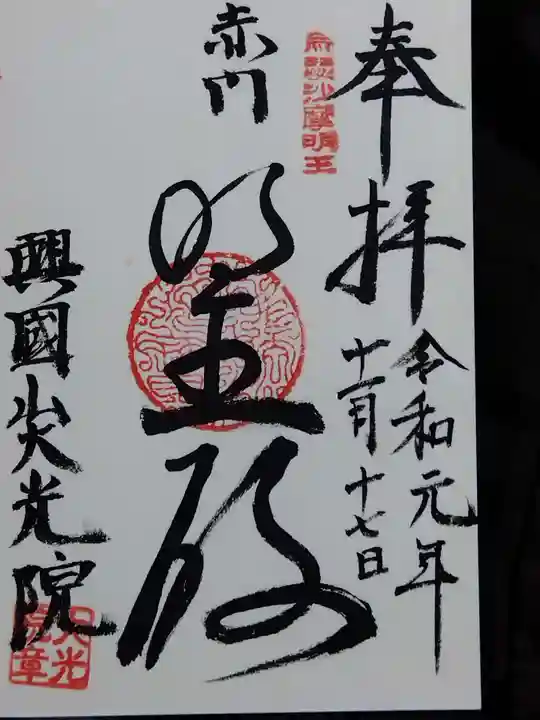 奉拝
令和元年
十一月十七日
沙摩明王
赤門
明王殿
興國山天光院
天光院章